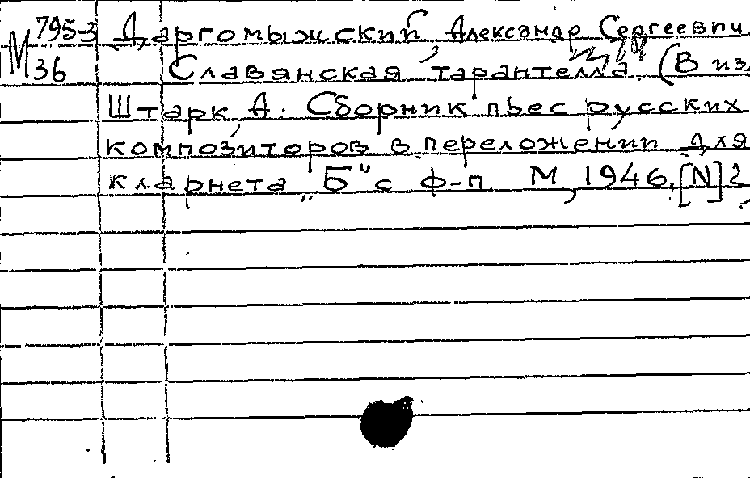 М 795-3 Даргомыжский, Александр Сергеевич
36 Славянская тарантелла. (В из
Штарк, А. Сборник пьес русских
композиторов в переложении для
кларнета „Б“ с ф-п М, 1946. [N] 2